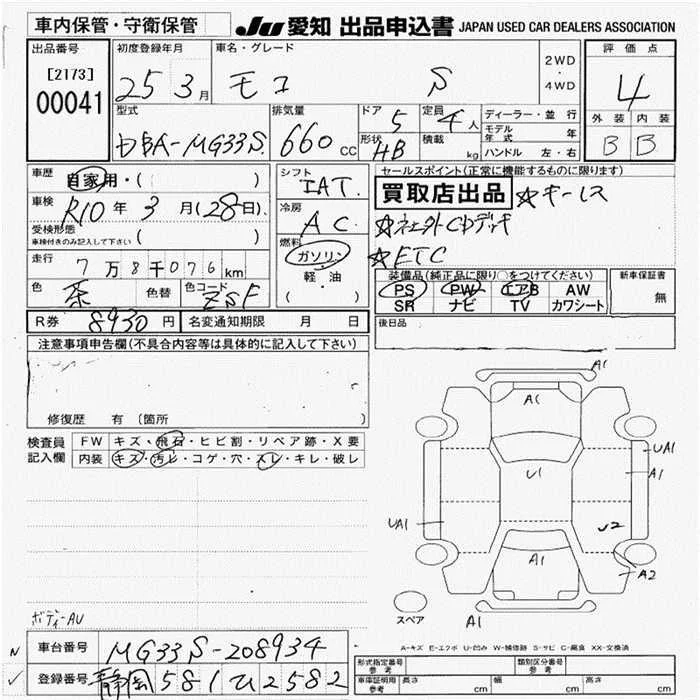 車内保管・守衛保管
JU 愛知 出品申込書 JAPAN USED CAR DEALERS ASSOCIATION
出品番号 初度登録年月 車名・グレード 評価点
[2173] 25 3月 モコ S 2WD・4WD 4
00041
型式 排気量 ドア 5 定員 4人 ディーラー・並行 外装 内装
DBA-MG33S. 660cc 形状 HB 積載 kg モデル年式 年 B B
ハンドル 左・右
車歴 自家用・( ) シフト IAT. セールスポイント(正常に機能するものに限ります)
車検 R10年 3月(28日). 冷房 AC 買取店出品 ☆キーレス
受検形態 ☆社外CDデッキ
車検付きのみ記入して下さい ( ) 燃料 ☆ETC
走行 7万8千076km ガソリン 装備品(純正品に限り○をつけてください) 新車保証書
色 茶 色替 色コード ZSF 軽・油 PS PW エアB AW 無
( ) SR ナビ TV カワシート
R券 8930円 名変通知期限 月 日 後日品
注意事項申告欄(不具合内容等は具体的に記入して下さい)
修復歴 有 (箇所 )
検査員 FW キズ・飛石・ヒビ割・リペア跡・X要
記入欄 内装 キズ・汚レ・コゲ・穴・スレ・キレ・破レ
A1
A1
UA1
U1 A1
UA1 U2
A1 A2
スペア A1
ボディ-AU
A-キズ E-エクボ U-凹み W-補修跡 S-サビ C-腐食 XX-交換済
N 車台番号 MG33S-208934
✓ 登録番号 静岡 581 ひ2582
形式指定番号 参考 類別区分番号 参考
車庫証明用 参考 長さ cm 幅 cm 高さ cm